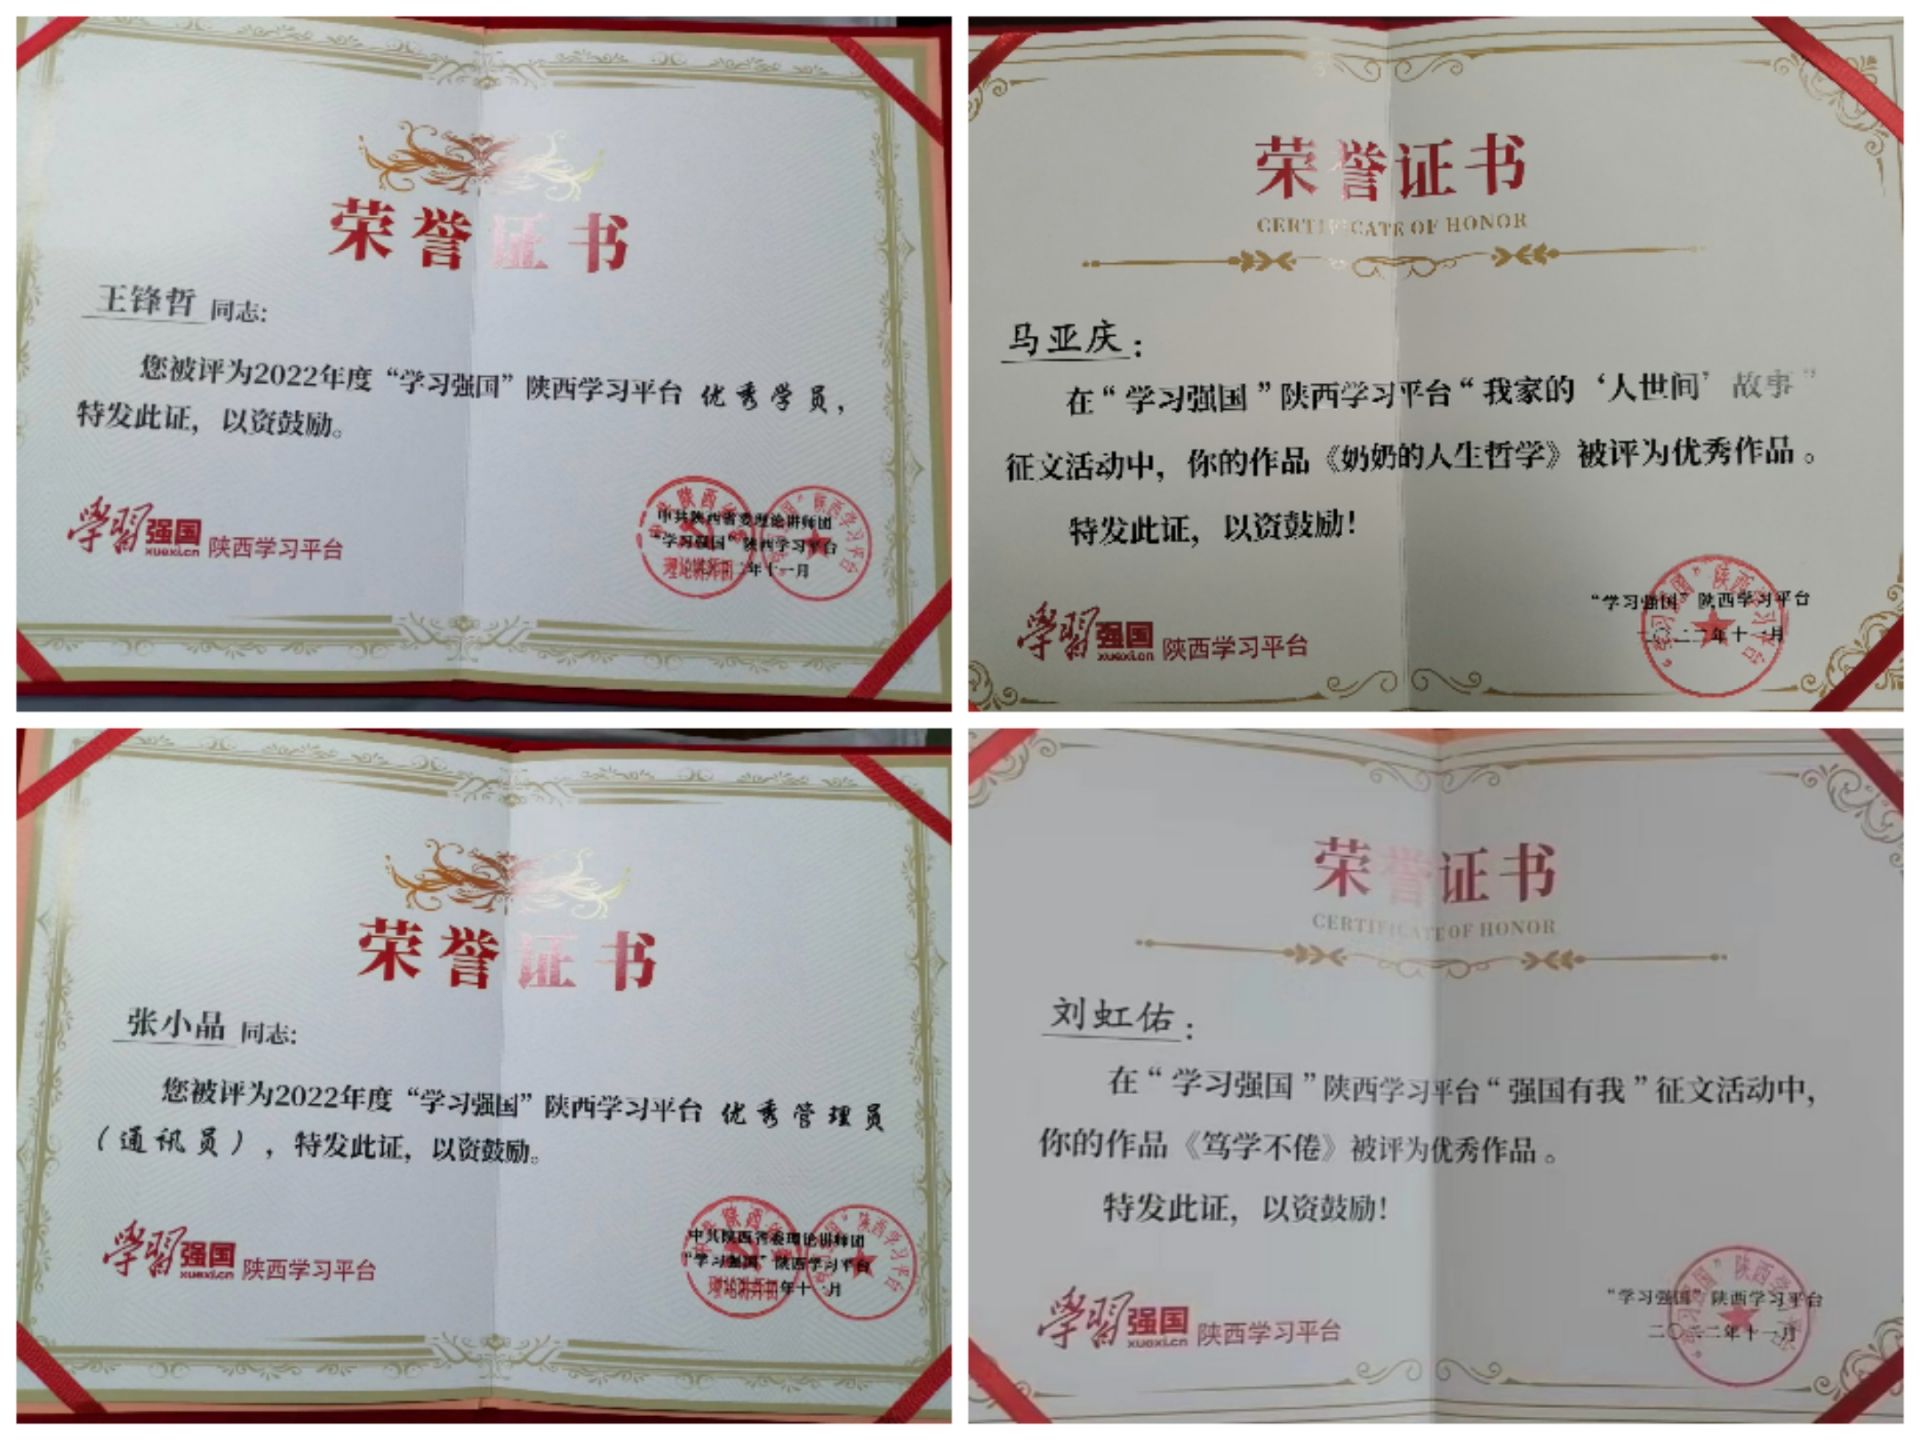 荣誉证书
王锋哲 同志:
您被评为2022年度“学习强国”陕西学习平台 优秀学员,
特发此证,以资鼓励。
学习强国 陕西学习平台
xuexi.cn
中共陕西省委理论讲师团
“学习强国”陕西学习平台
二年十一月
荣誉证书
CERTIFICATE OF HONOR
马亚庆:
在“学习强国”陕西学习平台“我家的‘人世间’故事”
征文活动中,你的作品《奶奶的人生哲学》被评为优秀作品。
特发此证,以资鼓励!
学习强国 陕西学习平台
xuexi.cn
“学习强国”陕西学习平台
二〇二二年十一月
荣誉证书
张小品 同志:
您被评为2022年度“学习强国”陕西学习平台 优秀管理员
(通讯员),特发此证,以资鼓励。
学习强国 陕西学习平台
xuexi.cn
中共陕西省委理论讲师团
“学习强国”陕西学习平台
年十一月
荣誉证书
CERTIFICATE OF HONOR
刘虹佑:
在“学习强国”陕西学习平台“强国有我”征文活动中,
你的作品《笃学不倦》被评为优秀作品。
特发此证,以资鼓励!
学习强国 陕西学习平台
xuexi.cn
“学习强国”陕西学习平台
二〇二二年十一月